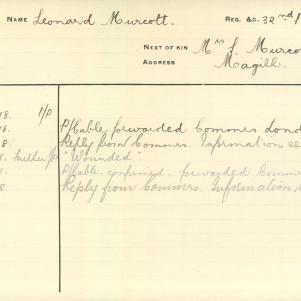 NAME Leonard Murcott. REG. &C. 32nd
NEXT OF KIN Mrs J. Murco
ADDRESS Magill.
18. 1/p P/Cable forwarded Commrs Lond
18. Reply from Commrs. Information se
8. Further 1/p "Wounded".
P/Cable confirmed. forwarded Comme
8 Reply from Commrs. Information